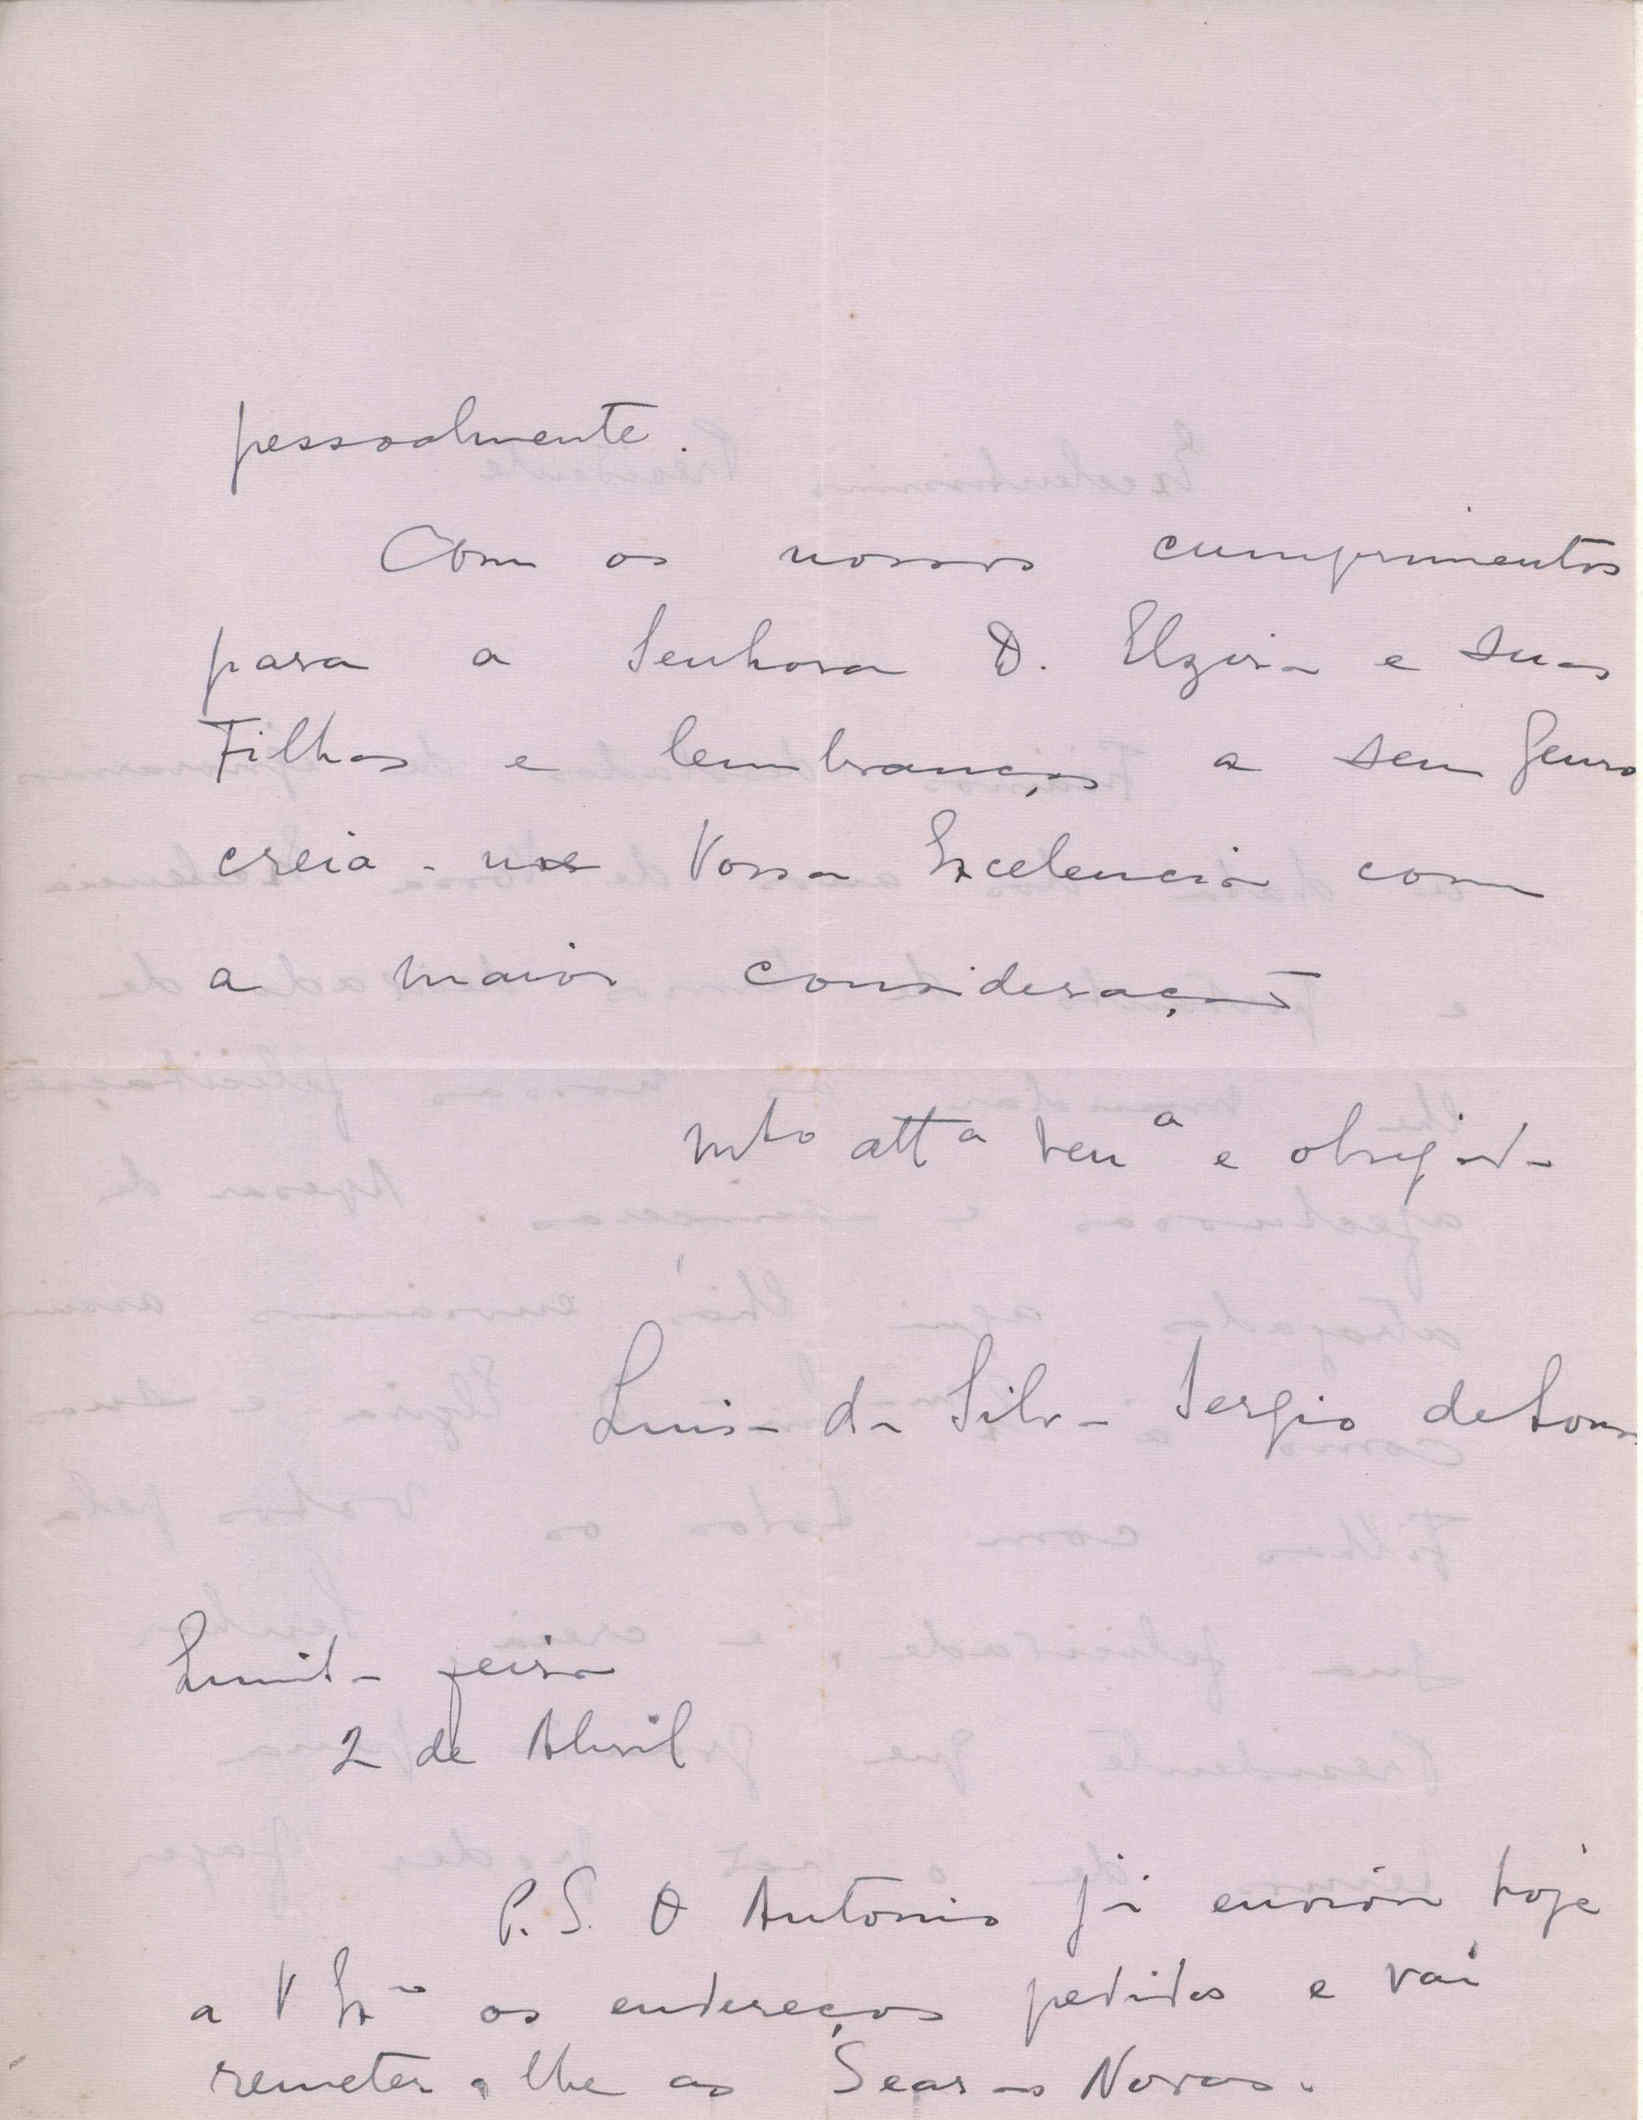 pessoalmente.
Com os nossos cumprimentos
para a Senhora D. Elzira e suas
Filhas e lembranças a seu Genro
creia-nos Vossa Excelencia com
a maior consideração
mto attª venª e obrigada
Luisa da Silva Sergio de Sousa
feira
2 de Abril
P.S. O Antonio já enviou hoje
a V Exª os endereços pedidos e vai
remeter-lhe as Searas Novas.